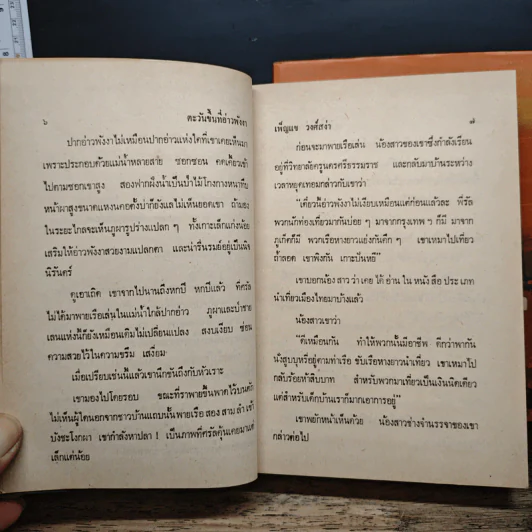 ๖
ตะวันขึ้นที่อ่าวพังงา
ปากอ่าวพังงาไม่เหมือนปากอ่าวแห่งใดที่เขาเคยเห็นมา
เพราะประกอบด้วยแม่น้ำหลายสาย ซอกซอน คดเคี้ยวเข้า
ไปตามซอกเขาสูง สองฟากฝั่งน้ำเป็นป่าไม้โกงกางหนาทึบ
หน้าผาสูงขนาดแหงนคอตั้งบ่าก็ยังแลไม่เห็นยอดเขา ถ้ามอง
ในระยะไกลจะเห็นภูผารูปร่างแปลก ๆ ทั้งเกาะเล็กแก่งน้อย
เสริมให้อ่าวพังงาสวยงามแปลกตา และน่ารื่นรมย์อยู่เป็นนิจ
นิรันดร์
ดูเอาเถิด เขาจากไปนานถึงหกปี หกปีแล้ว ที่ศรัล
ไม่ได้มาพายเรือเล่นในแม่น้ำใกล้ปากอ่าว ภูผาและป่าชาย
เลนแห่งนี้ก็ยังเหมือนเดิมไม่เปลี่ยนแปลง สงบเงียบ ซ่อน
ความสวยไว้ในความขรึม เสงี่ยม
เมื่อเปรียบเช่นนี้แล้วเขานึกขันถึงกับหัวเราะ
เขามองไปโดยรอบ ขณะที่ราพายขึ้นพาดไว้บนตัก
ไม่เห็นผู้ใดนอกจากชาวบ้านแถบนั้นพายเรือ สอง สาม ลำ เข้า
บังชะโงกผา เขากำลังหาปลา ! เป็นภาพที่ศรัลคุ้นเคยมาแต่
เล็กแต่น้อย
เพ็ญแข วงศ์สง่า
๗
ก่อนจะมาพายเรือเล่น น้องสาวของเขาซึ่งกำลังเรียน
อยู่ที่วิทยาลัยครูนครศรีธรรมราช และกลับมาบ้านระหว่าง
เวลาหยุดเทอมกล่าวกับเขาว่า
"เดี๋ยวนี้อ่าวพังงาไม่เงียบเหมือนแต่ก่อนแล้วละ พี่รัล
พวกนักท่องเที่ยวมากันบ่อย ๆ มาจากกรุงเทพ ฯ ก็มี มาจาก
ภูเก็ตก็มี พวกเรือหางยาวแย่งกันดึก ๆ เขาเหมาไปเที่ยว
ถ้ำลอด เขาพิงกัน เกาะปันหยี"
เขาบอกน้อง สาว ว่า เคย ได้ อ่าน ใน หนัง สือ ประ เภท
นำเที่ยวเมืองไทยมาบ้างแล้ว
น้องสาวเขาว่า
"ดีเหมือนกัน ทำให้พวกนั้นมีอาชีพ ดีกว่าพากัน
นั่งสูบบุหรี่อยู่ตามท่าเรือ ขับเรือหางยาวนำเที่ยว เขาเหมาไป
กลับร้อยห้าสิบบาท สำหรับพวกมาเที่ยวเป็นเงินนิดเดียว
แต่สำหรับเด็กบ้านเราก็มากเอาการอยู่"
เขาพยักหน้าเห็นด้วย น้องสาวช่างจำนรรจาของเขา
กล่าวต่อไป